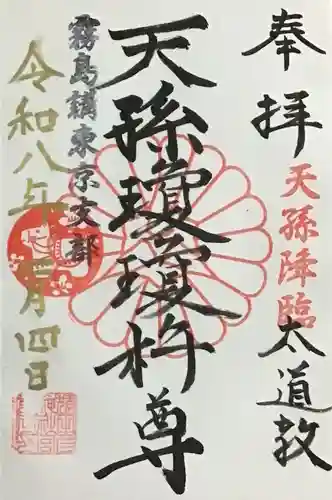 奉拝
天孫降臨
太道教
天孫瓊瓊杵尊
霧島講東京支部
令和八年
月四日